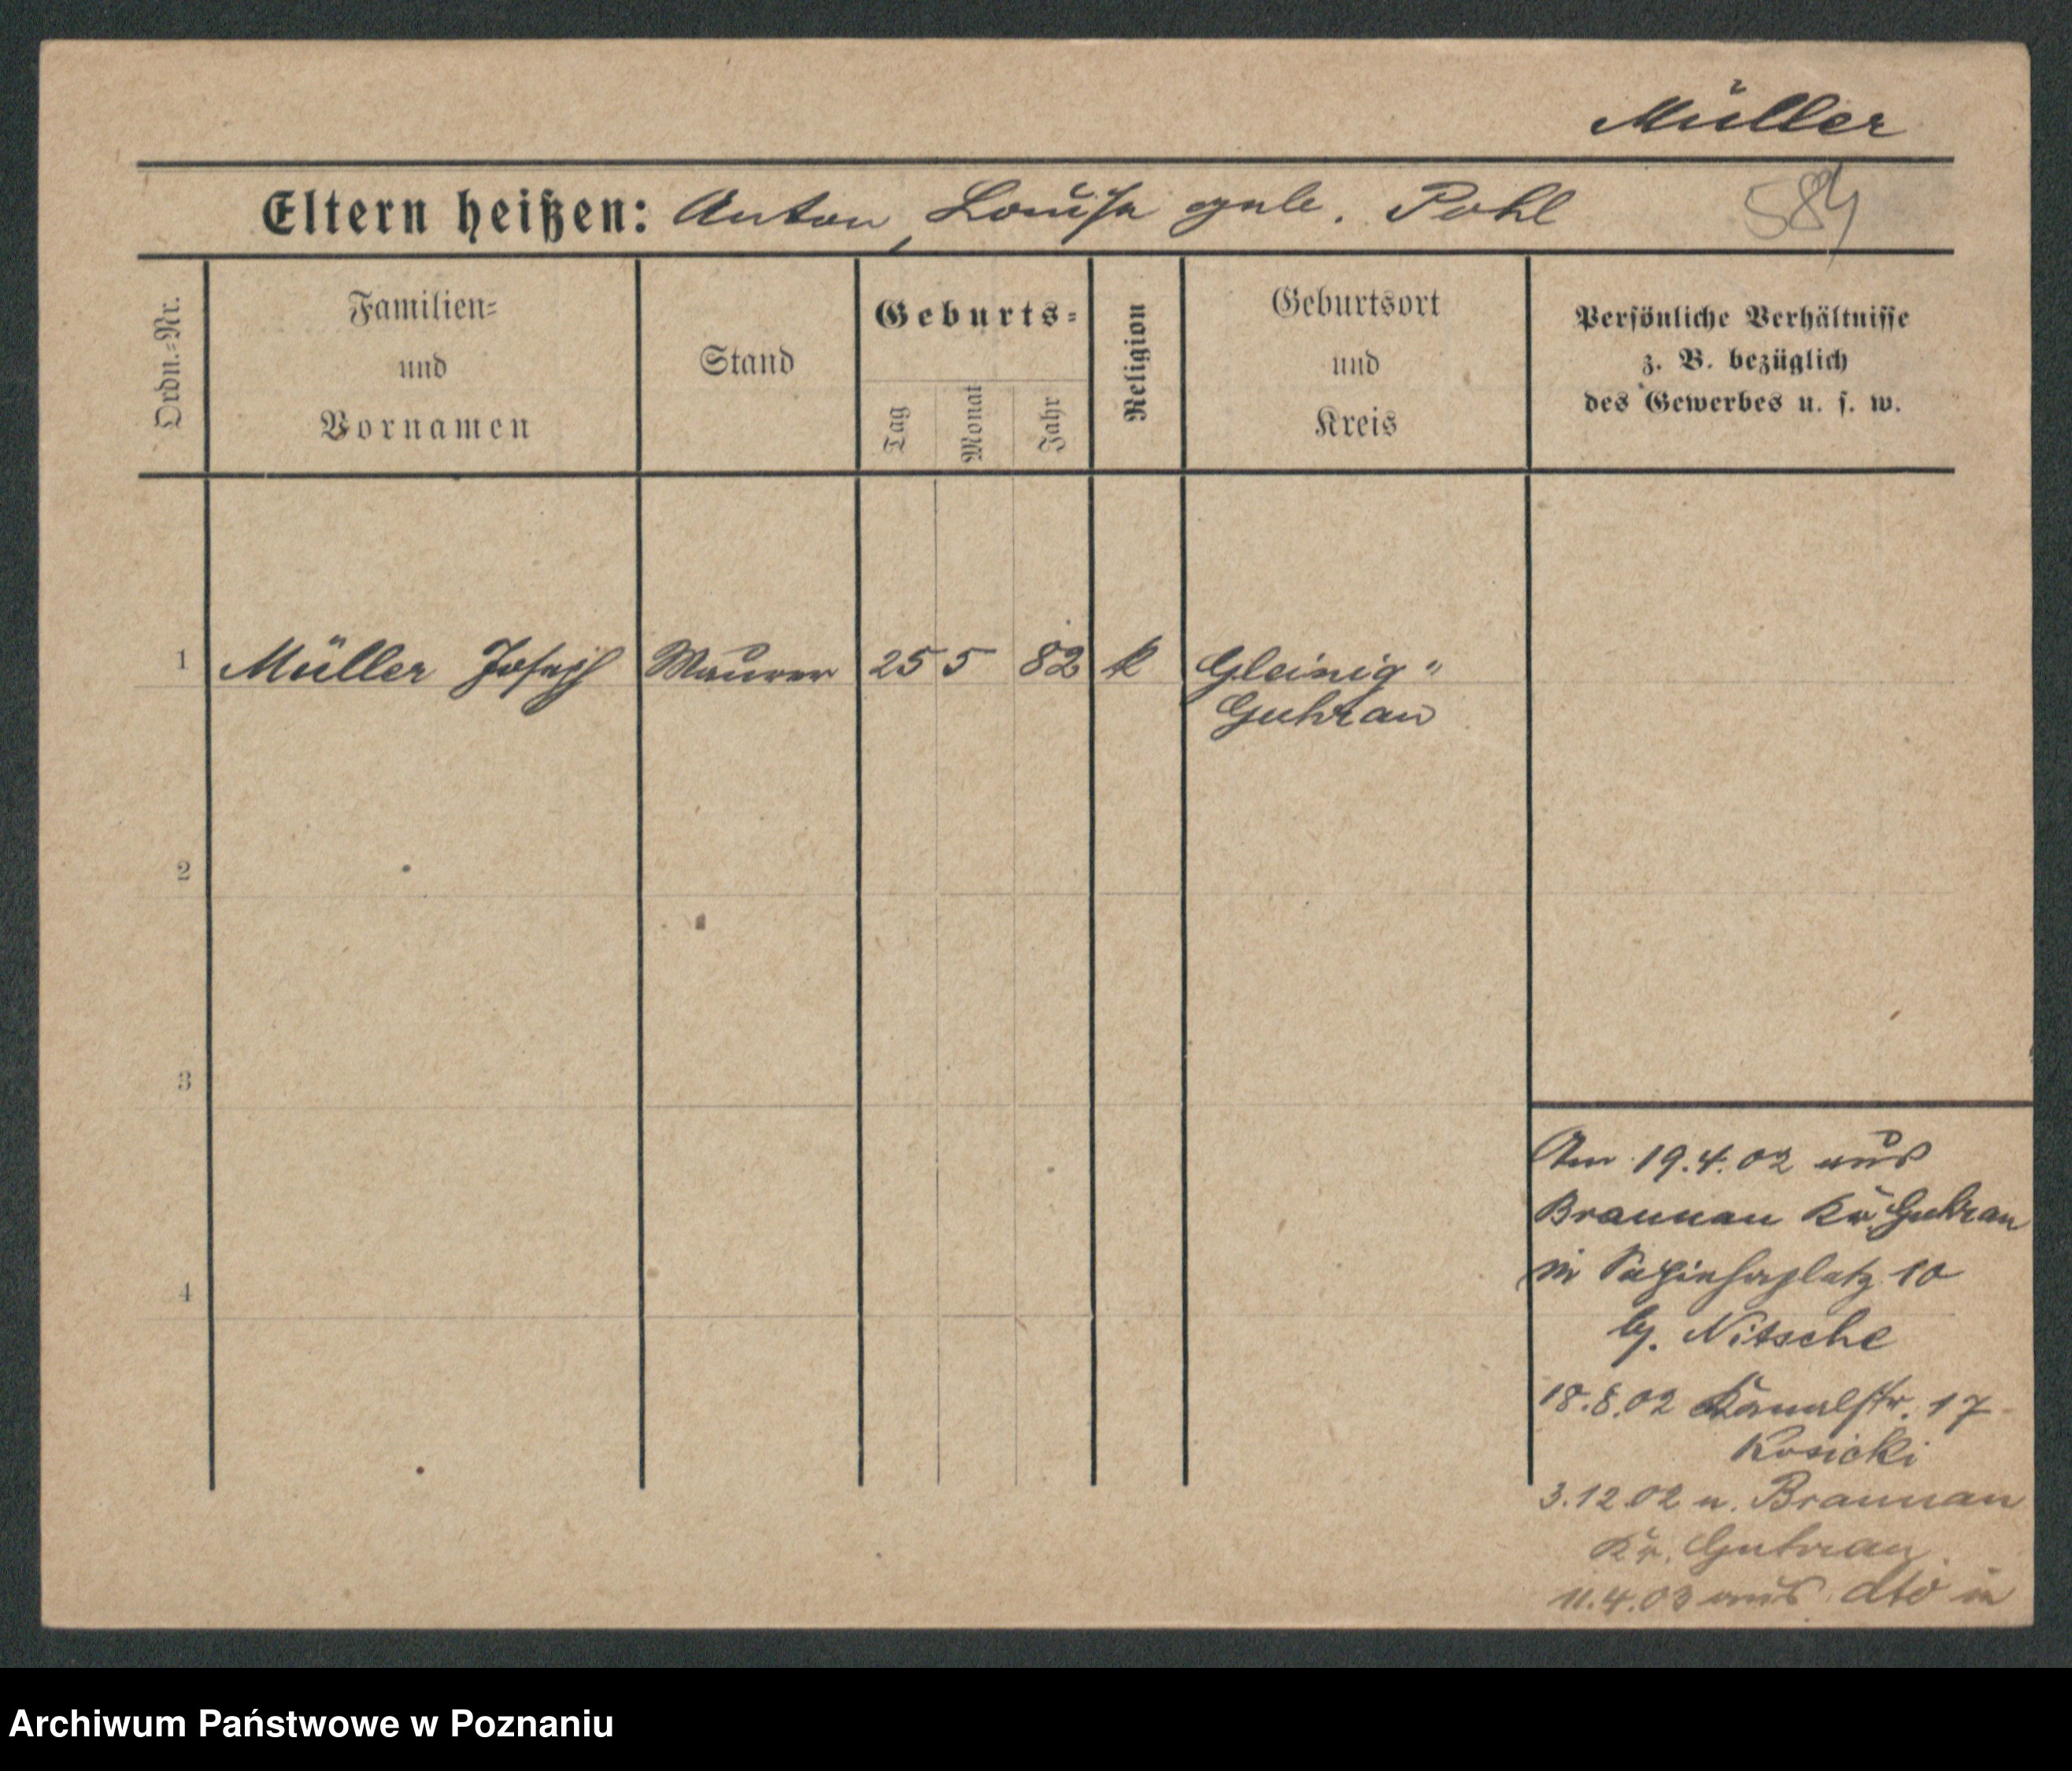 Müller
Eltern heißen: Anton, Louise geb. Pohl 584
Ordn.-Nr.
Familien-
und
Vornamen
Stand
Geburts-
Tag
Monat
Jahr
Religion
Geburtsort
und
Kreis
Persönliche Verhältnisse
z. B. bezüglich
des Gewerbes u. s. w.
1 Müller Joseph Maurer 25 5 82 k Gleinig "
Guhrau
2
3
4
Am 19.4.02 aus
Braunau Kr. Guhrau
in Sapiehaplatz 10
bj. Nitsche
18.8.02 Kanalstr. 17
Kosicki
3.12.02 n. Braunau
Kr. Guhrau
11.4.03 aus dto in
Archiwum Państwowe w Poznaniu